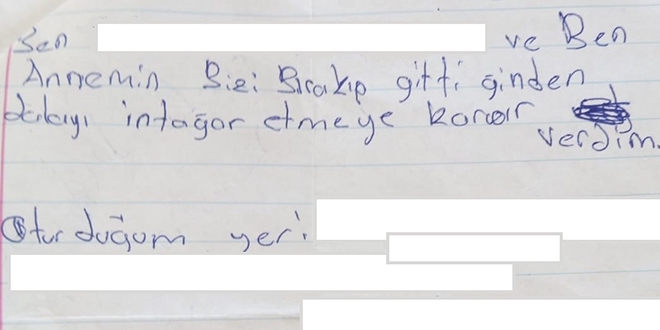 Ben ve Ben
Annemin Bizi Bırakıp gitti ğinden
dolayı intağar etmeye karar
verdim.
Oturduğum yer: